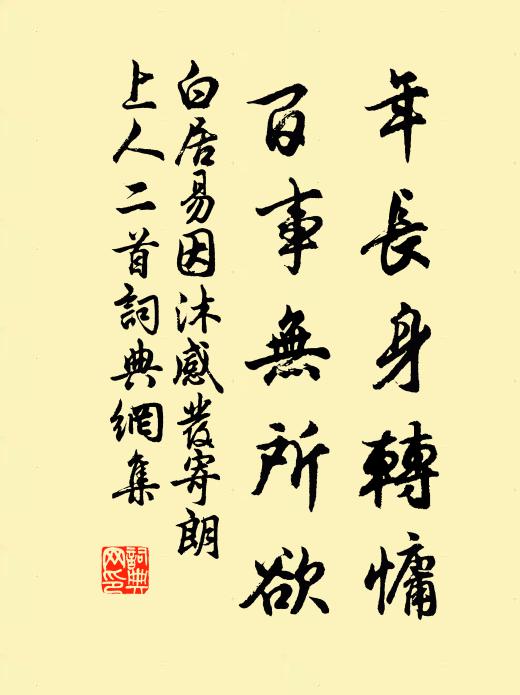 年長身轉慵
百事無所欲
白居易因沐感發寄朗
上人二首詞典網集
詞典
网印